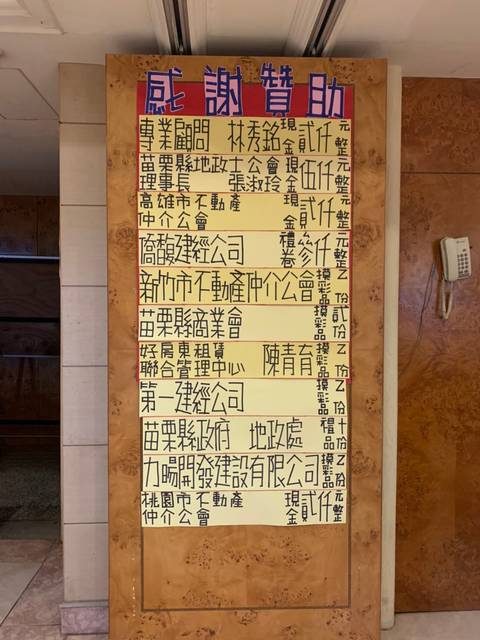 感謝贊助
專業顧問 林秀銘 現金貳仟元整
苗栗縣地政士公會 理事長 張淑玲 現金伍仟元整
高雄市不動產仲介公會 現金貳仟元整
僑馥建經公司 禮卷參仟元整
新竹市不動產仲介公會 摸彩品乙份
苗栗縣商業會 摸彩品貳份
好房東租賃聯合管理中心 陳青育 摸彩品乙份
第一建經公司 摸彩品乙份
苗栗縣政府 地政處 禮品十份
力暘開發建設有限公司 摸彩品乙份
桃園市不動產仲介公會 現金貳仟元整